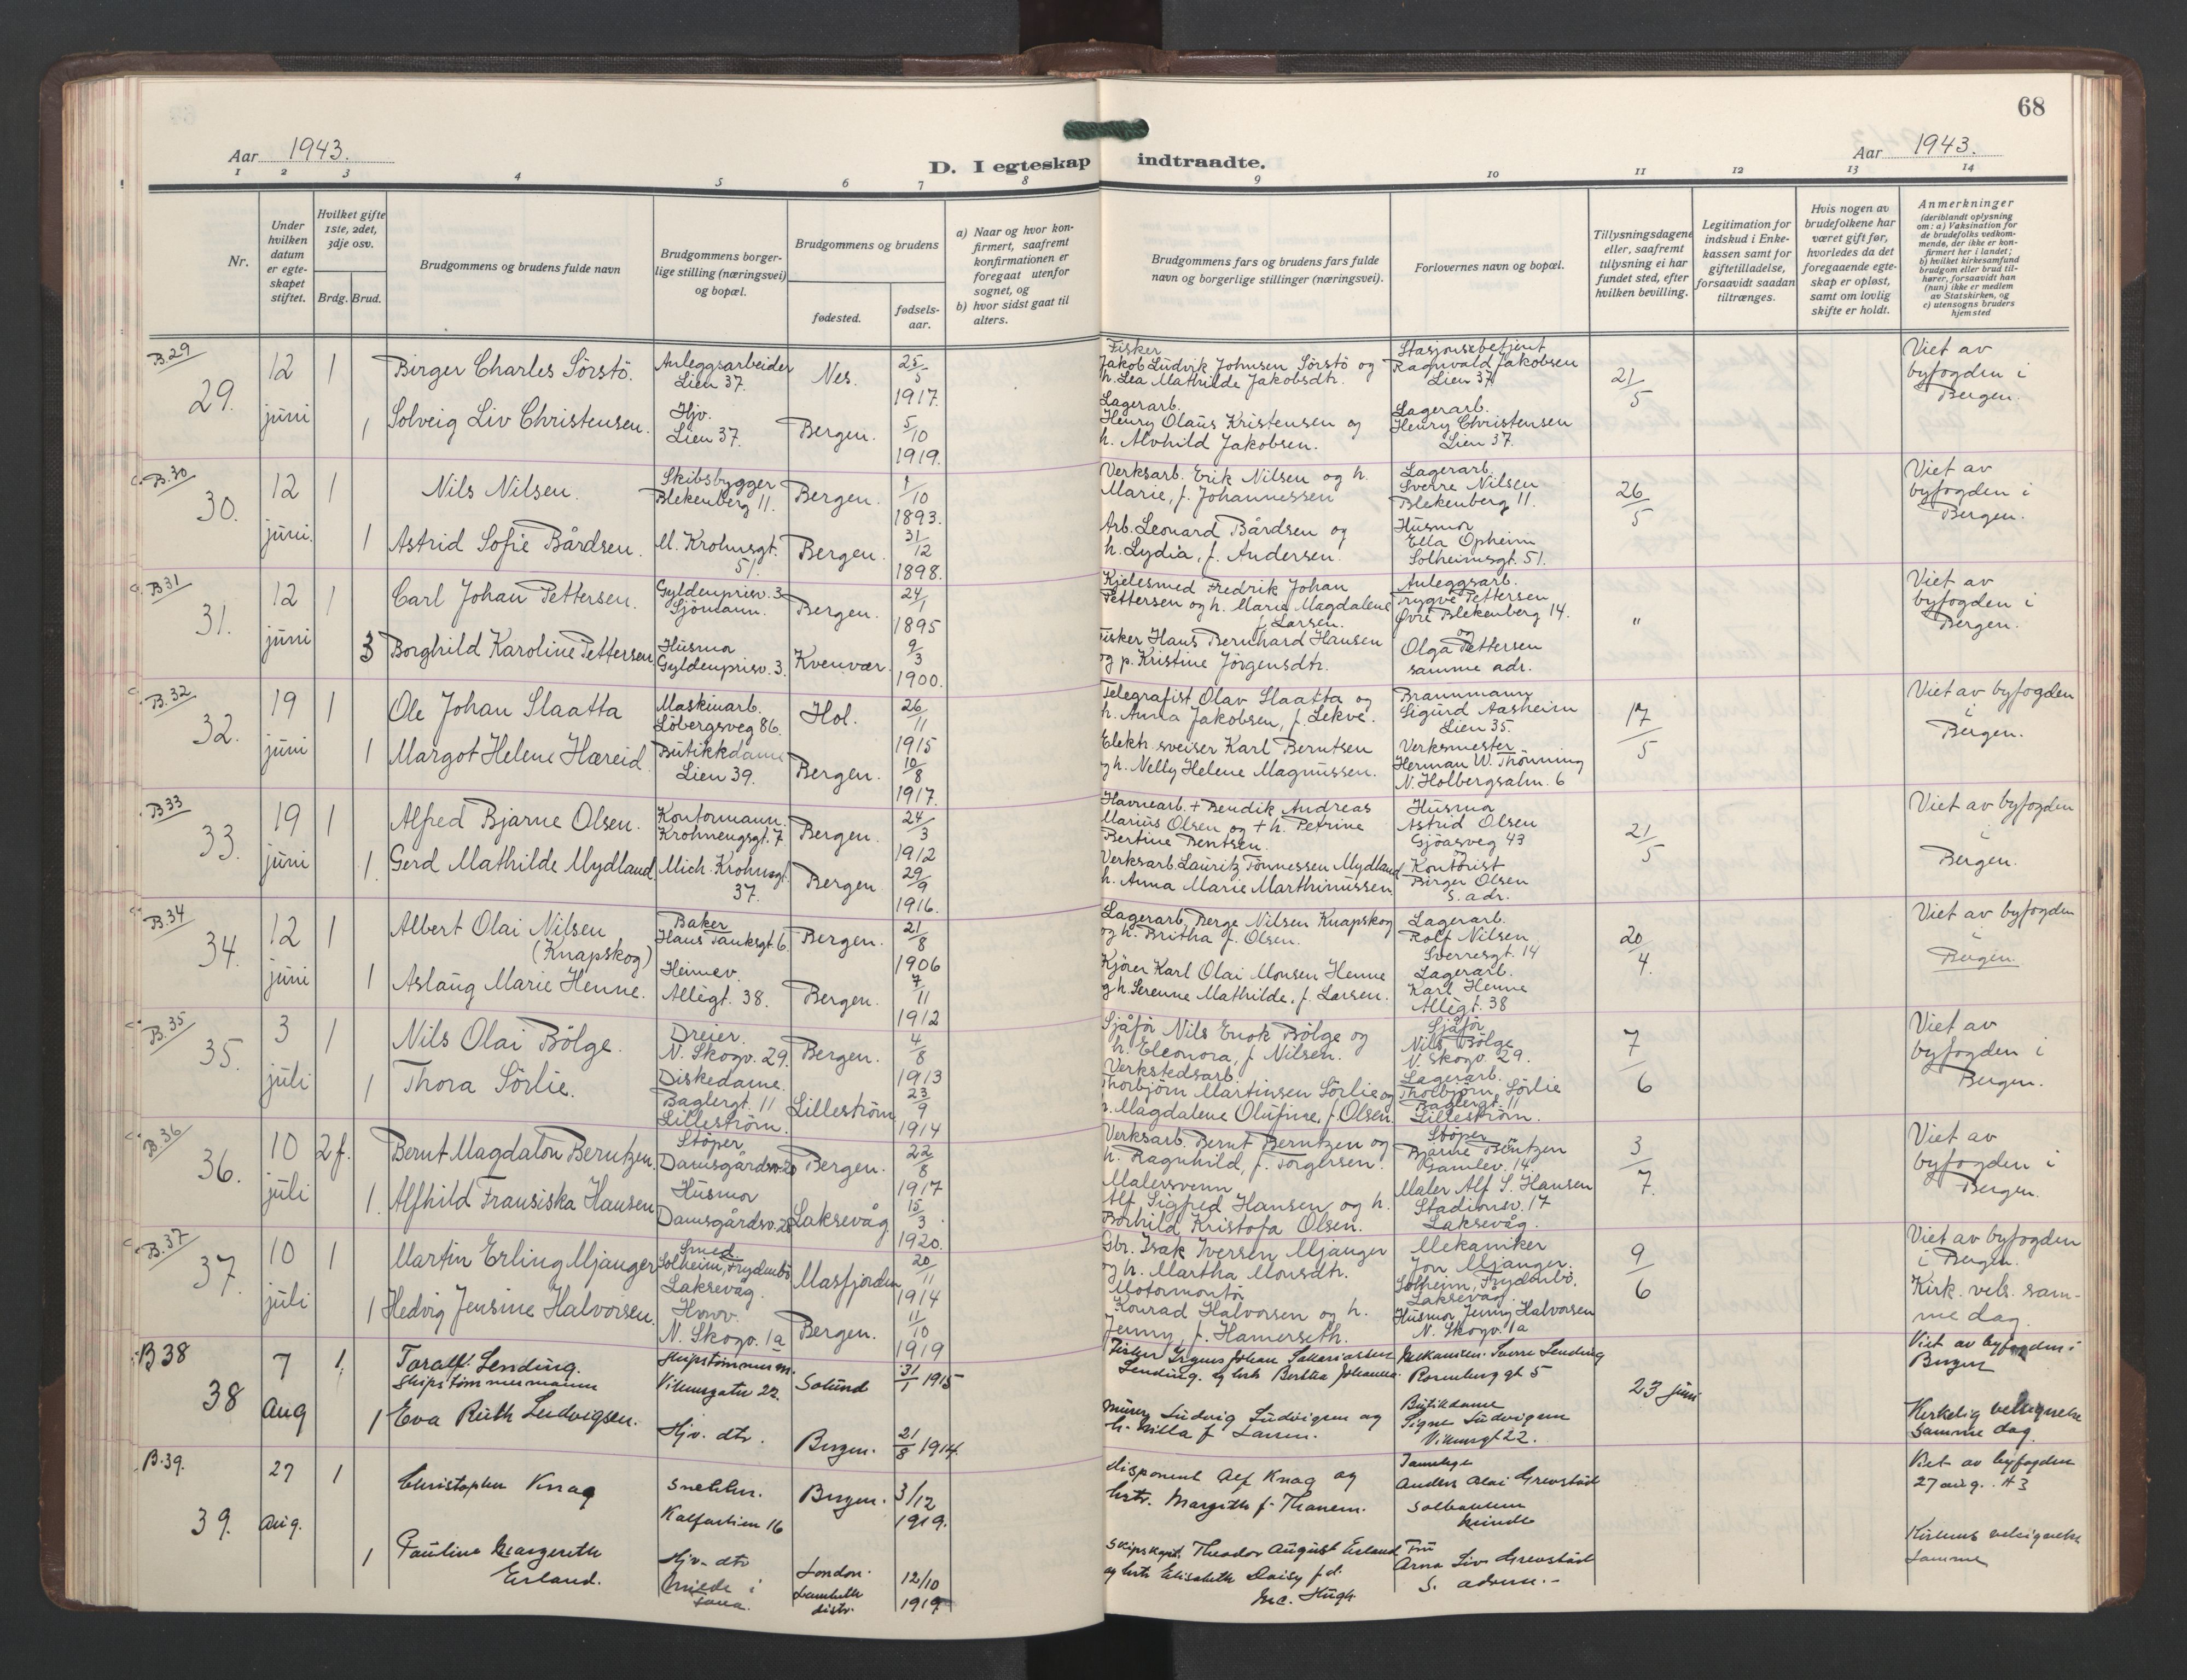 68
Aar 1943.
D. I egteskap indtraadte.
Aar 1943.
1 2 3 4 5 6 7 8 9 10 11 12 13 14
Nr.
Under hvilken datum er egteskapet stiftet.
Hvilket gifte 1ste, 2det, 3dje osv.
Brdg. Brud.
Brudgommens og brudens fulde navn
Brudgommens borgerlige stilling (næringsvei) og bopæl.
Brudgommens og brudens
fødested.
fødselsaar.
a) Naar og hvor konfirmert, saafremt konfirmationen er foregaat utenfor sognet, og
b) hvor sidst gaat til alters.
Brudgommens fars og brudens fars fulde navn og borgerlige stillinger (næringsvei).
Forlovernes navn og bopæl.
Tillysningsdagene eller, saafremt tillysning ei har fundet sted, efter hvilken bevilling.
Legitimation for indskud i Enkekassen samt for giftetilladelse, forsaavidt saadan tiltrænges.
Hvis nogen av brudefolkene har været gift før, hvorledes da det foregaaende egteskap er opløst, samt om lovlig skifte er holdt.
Anmerkninger
(deriblandt oplysning om: a) Vaksination for de brudefolks vedkommende, der ikke er konfirmert her i landet; b) hvilket kirkesamfund brudgom eller brud tilhører, forsaavidt han (hun) ikke er medlem av Statskirken, og c) utensogns bruders hjemsted
B29
29.
12 juni
1
Birger Charles Sörstö.
Anleggsarbeider
Lien 37.
Nes.
25/5 1917.
Fisker
Jakob Ludvik Johnsen Sörstö og
h. Lea Mathilde Jakobsdtr.
Stasjonsbetjent
Ragnvald Jakobsen
Lien 37
21/5
Viet av
byfogden i
Bergen.
1
Solveig Liv Christensen.
Hjv.
Lien 37.
Bergen.
5/10 1919.
Lagerarb.
Henry Olaus Kristensen og
h. Alvhild Jakobsen.
Lagerarb.
Henry Christensen
Lien 37.
B.30
30.
12 juni.
1
Nils Nilsen.
Skibsbygger
Blekenberg 11.
Bergen.
1/10 1893.
Verksarb. Erik Nilsen og h.
Marie, f. Johannessen
Lagerarb.
Sverre Nilsen
Blekenberg 11.
26/5
Viet av
byfogden i
Bergen.
1
Astrid Sofie Bårdsen.
M. Krohnsgt.
51.
Bergen.
31/12 1898.
Arb. Leonard Bårdsen og
h. Lydia, f. Andersen.
Husmor
Ella Opheim
Solheimsgt. 51.
B31
31.
12 juni
1
Carl Johan Pettersen.
Gyldenprisv. 3
Sjömann.
Bergen.
24/1 1895
Kjelesmed Fredrik Johan
Pettersen og h. Marie Magdalene
f. Larsen.
Anleggsarb.
Trygve Pettersen
Øvre Blekenberg 14.
og
"
Viet av
byfogden i
Bergen.
3
Borghild Karoline Pettersen
Husmor
Gyldenprisv. 3.
Kvenvær.
9/3 1900.
Fisker Hans Bernhard Hansen
og p. Kristine Jörgensdtr.
Olga Pettersen
samme adr.
B.32
32.
19 juni
1
Ole Johan Slaatta
Maskinarb.
Löbergsveg 86.
Hol.
26/11 1915
Telegrafist Olav Slaatta og
h. Anna Jakobsen, f. Lekve.
Brannmann
Sigurd Aasheim
Lien 35.
17/5
Viet av byfogden
i
Bergen.
1
Margot Helene Hæreid
Butikkdame
Lien 39.
Bergen.
10/8 1917.
Elektr. sveiser Karl Berntsen
og h. Nelly Helene Magnussen.
Verksmester
Herman W. Thönning
N. Holbergsalm. 6
B33
33.
19 juni
1
Alfred Bjarne Olsen.
Kontormann.
Krohnengsgt. 7
Bergen.
24/3 1912
Havnearb. + Bendik Andreas
Marius Olsen og + h. Petrine
Bertine Bentsen.
Husmor
Astrid Olsen
Gjöasveg 43
og
21/5
Viet av byfogden
i
Bergen.
1.
Gerd Mathilde Mydland.
Mich. Krohnsgt.
37.
Bergen
29/9 1916.
Verksarb. Lauritz Tönnessen Mydland
h. Anna Marie Marthinussen
Kontorist
Birger Olsen
s. adr.
B.34
34.
12 juni
1
Albert Olai Nilsen
(Knapskog)
Baker
Hans Tanksgt. 6.
Bergen.
21/8 1906
Lagerarb. Berge Nilsen Knapskog
og h. Britha f. Olsen.
Lagerarb.
Rolf Nilsen
Sverresgt. 14
20/4.
Viet av byfogden
i
Bergen.
1
Aslaug Marie Henne.
Heimev.
Allégt. 38.
Bergen.
7/11 1912
Kjörer Karl Olai Monsen Henne
og h. Serenne Mathilde, f. Larsen.
Lagerarb.
Karl Henne
Allégt. 38
B.35
35.
3 juli
1
Nils Olai Bölge.
Dreier.
N. Skogv. 29.
Bergen.
4/8 1913
Sjåför Nils Enok Bölge og
h. Eleonora, f. Nilsen.
Sjåför
Nils Bölge
N. Skogv. 29.
7/6
Viet av
byfogden i
Bergen.
1
Thora Sörlie.
Diskedame.
Baglergt. 11
Lilleström.
Lilleström
23/9 1914
Verkstedsarb.
Thorbjörn Martinsen Sörlie og
h. Magdalene Olufine, f. Olsen.
Lagerarb.
Thorbjörn Sörlie
Baglergt. 11
Lilleström.
B.36
36.
10 juli
2 f.
Bernt Magdalon Berntzen.
Stöper
Damsgårdsv. 20
Bergen.
22/8 1917
Verksarb. Bernt Berntzen og
h. Ragnhild, f. Torgersen.
Stöper
Bjarne Böntzen
Gamlev. 14
3/7.
Viet av
byfogden i
Bergen.
1.
Alfhild Fransiska Hansen
Husmor
Damsgårdsv. 28
Laksevåg
15/3 1920.
Malersvenn
Alf Sigfred Hansen og h.
Borhild Kristofa Olsen.
Maler Alf S. Hansen
Stadionv. 17
Laksevåg.
B.37
37.
10 juli
1
Martin Erling Mjanger
Smed.
Solheim, Frydenbö
Laksevåg.
Masfjorden
20/11 1914
Gbr. Isak Iversen Mjanger
og h. Martha Monsdtr.
Mekaniker
Jon Mjanger.
Solheim, Frydenbö.
Laksevåg.
9/6
Viet av byfogden
i Bergen.
Kirk. vels. sam-
me dag.
1
Hedvig Jensine Halvorsen.
N. Skogv. 1a
Bergen.
11/10 1919
Motormontör
Konrad Halvorsen og h.
Jenny, f. Hamerseth.
Husmor Jenny Halvorsen
N. Skogv. 1a
B 38
38
7 Aug
1.
Toralf Sending.
Skipstömmermann
Skipstömmerm.
Vikensgaten 22.
Solund
31/1 1915
Fisker Johan
Sending. og hstr Bertha Johanna
Mekaniker. Sverre Sending
Rosenberg gt 5
23 juni
Viet av byfogden i
Bergen
1
Eva Ruth Ludvigsen.
Hjv. dtr.
Bergen.
21/8 1914.
Murer Ludvig Ludvigsen og
h. Milla f Larsen.
Butikdame
Signe Ludvigsen
Vikensgt 22.
Kirkelig velsignelse
samme dag
B.39.
39.
27 Aug.
1
Christopher Knag
Snekker.
Kalfarlien 16
Bergen.
3/12 1919.
disponent Alf Knag og
hstr. Margith f. Thanem.
Tannlege
Anders Olai Grevstad
Solbakken
Minde
Viet av byfogden
27 aug. 43
1
Pauline Margereth
Erland.
Hjv. dtr
Minde i
Fana.
London.
Lambeth
distr.
12/10 1919
Skipskapt. Theodor August Erland
og hstr Elisabeth Daisy f.d.
Mc. Hugh
Fru
Arna Liv Grevstad
s. adresse.-
Kirkens velsignelse
samme